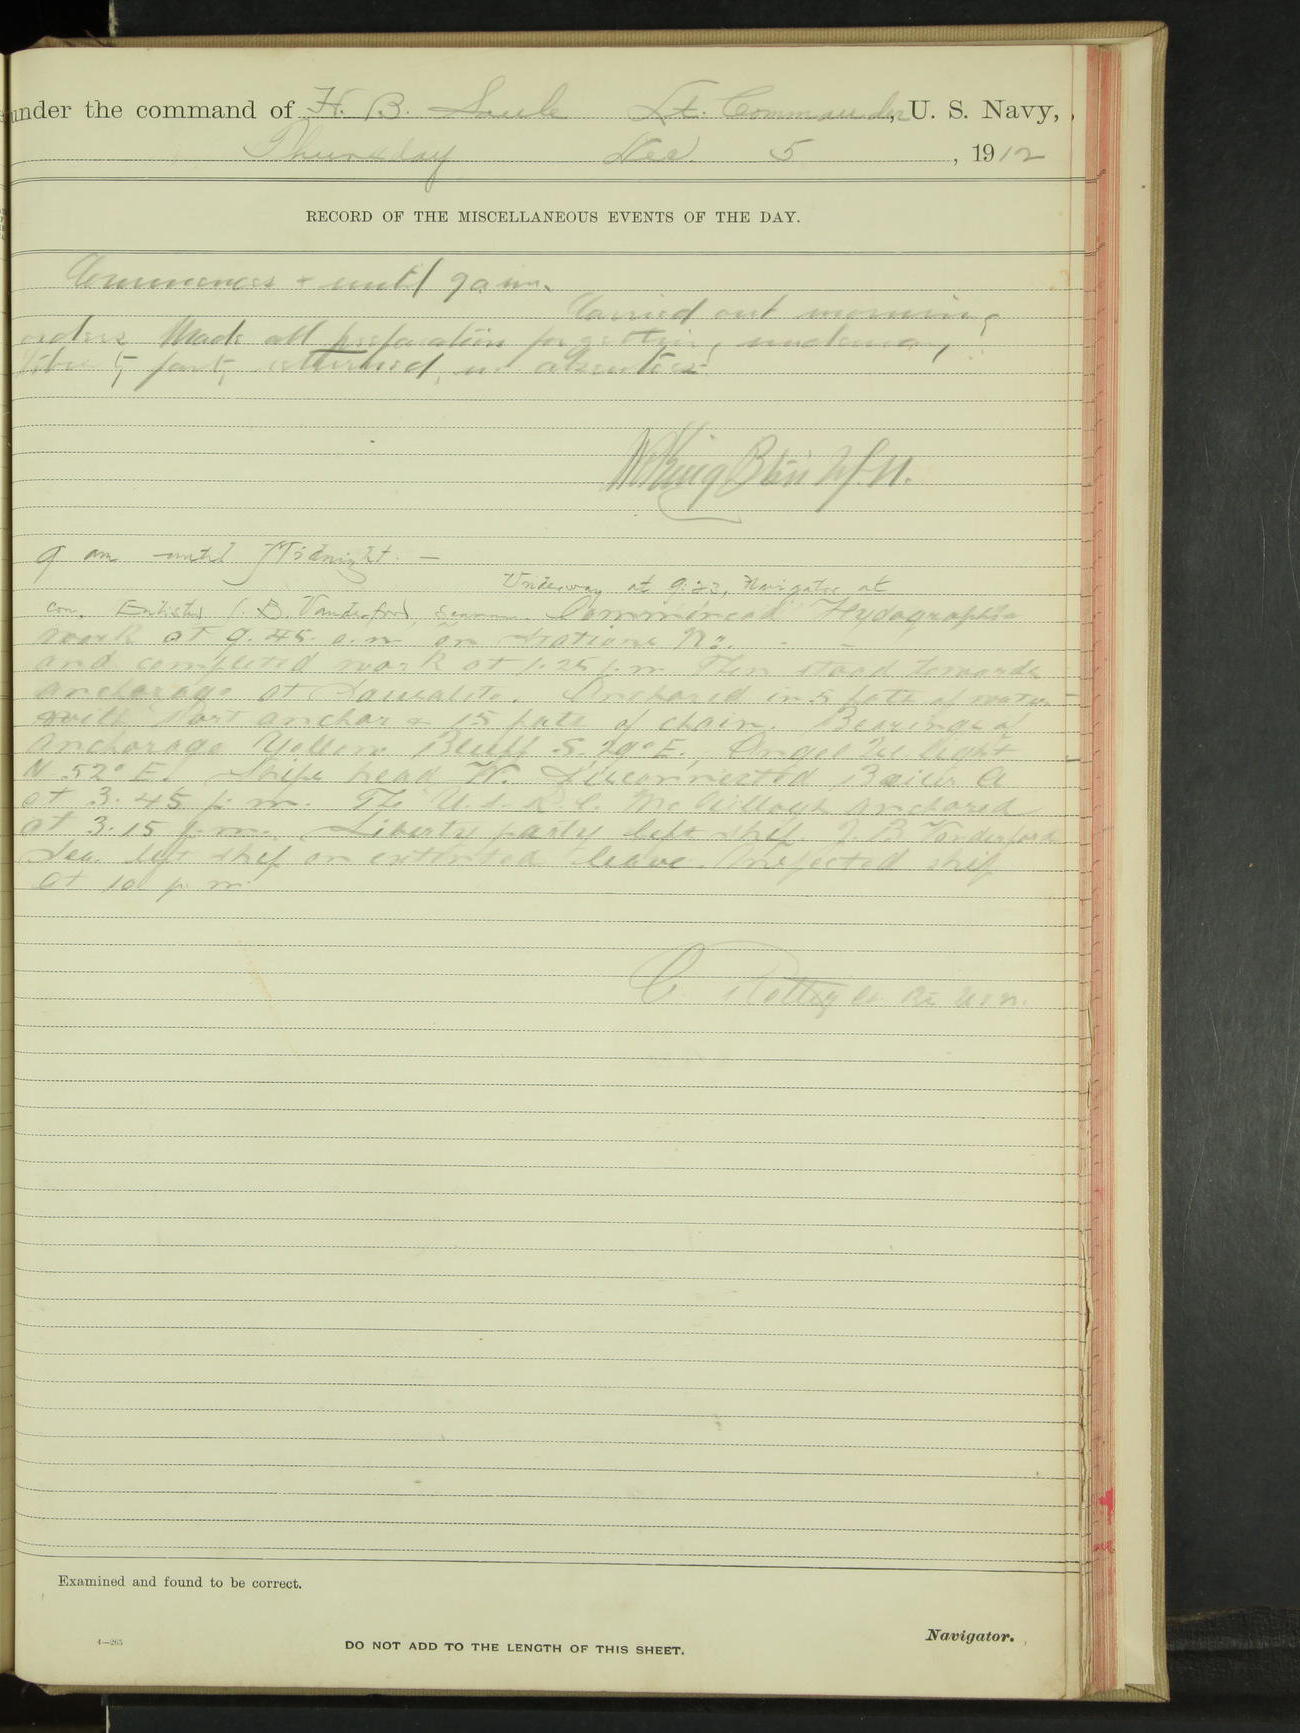 under the command of H. B. Soule Lt. Commander, U. S. Navy,
Thursday Dec. 5, 1912
RECORD OF THE MISCELLANEOUS EVENTS OF THE DAY.
Commences & until 9 a m.
Carried out morning
orders Made all preparation for getting underway,
Liberty party returned, no absentees.
King Btsn U.S.N.
9 am until Midnight. —
Underway at 9:23, Navigator at
con. Enlisted J. B. Vanderford, seaman. Commenced Hydographic
work at 9.45. a.m. on Stations No. - -
and completed work at 1.25 p.m. Then stood towards
anchorage at Sausalito. Anchored in 5 fats of water
with Port anchor & 15 fats of chain. Bearings of
anchorage Yellow Bluff S. 29° E., Angel Isl light
N 52° E. Ships head W. Disconnected Boiler A
at 3.45 p. m. The U. S. R. C. McCullogh anchored
at 3.15 p.m. Liberty party left ship. J. B. Vanderford
Sea. left ship on extented leave. Inspected ship
at 10 p. m.
C. U.S.N.
Examined and found to be correct.
4—265
DO NOT ADD TO THE LENGTH OF THIS SHEET.
Navigator.